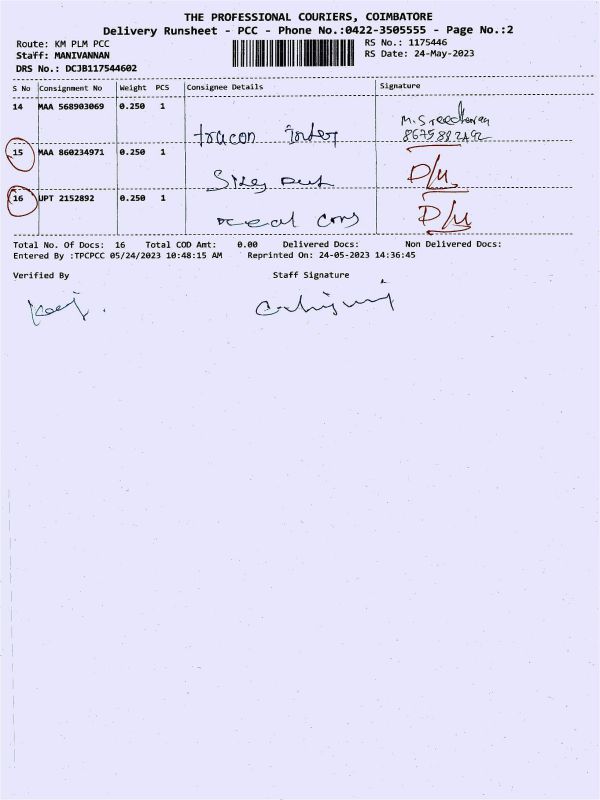 THE PROFESSIONAL COURIERS, COIMBATORE
Delivery Runsheet - PCC - Phone No.:0422-3505555 - Page No.:2
Route: KM PLM PCC
RS No.: 1175446
Staff: MANIVANNAN
RS Date: 24-May-2023
DRS No.: DCJB117544602
S No Consignment No Weight PCS Consignee Details Signature
14 MAA 568903069 0.250 1 tracon Inter M. Sreedharan
15 MAA 860234971 0.250 1 D/M
16 UPT 2152892 0.250 1 D/M
Total No. Of Docs: 16 Total COD Amt: 0.00 Delivered Docs: Non Delivered Docs:
Entered By :TPCPCC 05/24/2023 10:48:15 AM Reprinted On: 24-05-2023 14:36:45
Verified By Staff Signature